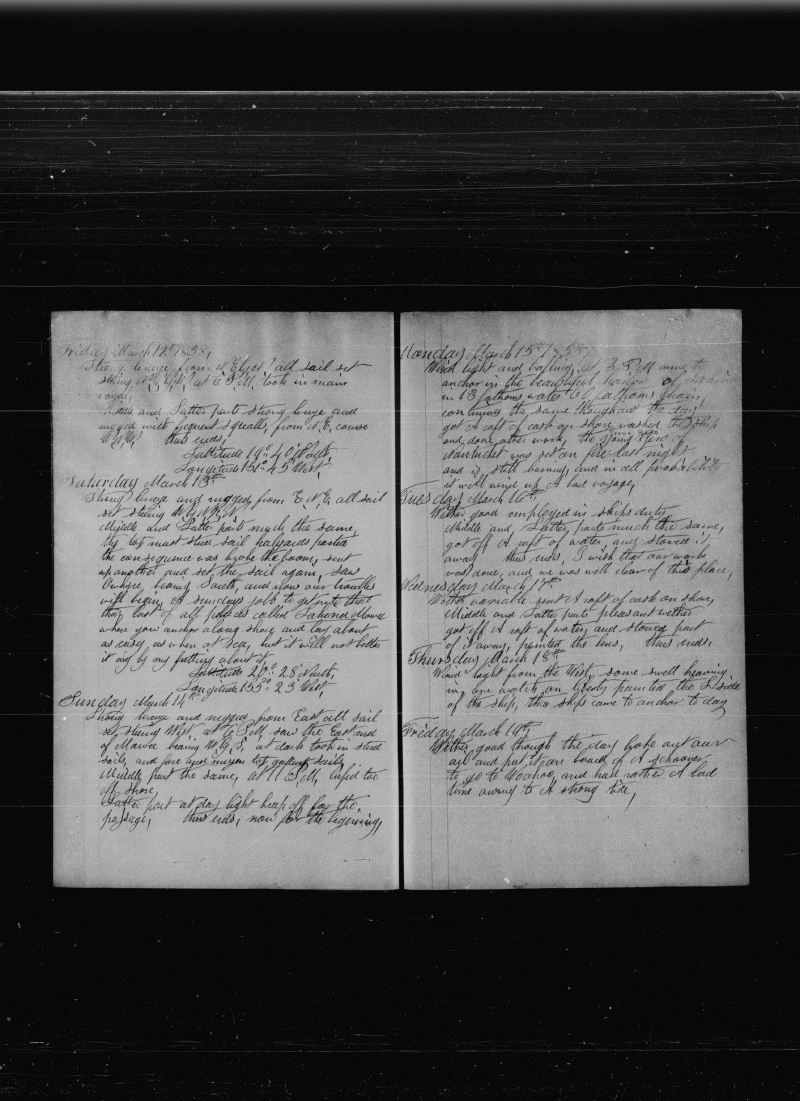 Friday March 12th 1858,
Strong breeze from N.E. by E, all sail set
stering W.N.W, at 6 P.M. took in main
royal,
Middle and Latter parts strong breeze and
rugged with frequent squalls, from N.E. course
W.N.W. thus ends,
Lattitude 19° 40 North,
Longitude 151° 45 West,
Saturday March 13th
Strong breeze and rugged from E.N.E. all sail
set stering W by N
Middle and Latter parts much the same,
top mast stud sail halyards parted
the consequence was broke the boom, sent
up another and set the sail again, saw
Owhyee bearing South, and now our troubles
will begin, A seven days job to get into that
that last of all places called Lahina Mowee
where you anchor along shore and lay about
as easy as when at sea, but it will not better
it any by my fretting about it,
Lattitude 20° 28 North,
Longitude 155° 23 West,
Sunday March 14th
Strong breeze and rugged from East all sail
set stering W.N. at 6 P.M. saw the East end
of Mawee bearing W.S. at dark took in stud
sails, and fore and mizen top gallant sails,
Middle part the same, at 11 P.M. luf'd too
off shore,
Latter part at day light keep off for the
passage, thus ends, now for the begining,
Monday March 15th 1858
Wind light and bafling, at 2 P.M. came to
anchor in the beautiful harbor of Lahina
in 13 fathoms water 60 fathoms chain,
continues the same throughout the day
got A raft of cask on shore washed the ship
and done other work, the Young Hero of
Nantucket was set on fire last night
and is still burning, and in all probability
it will wind up A bad voyage,
Tuesday March 16th
Wether good employed in ships duty
Middle and Latter parts much the same,
got off A raft of water and stowed it
away thus ends, I wish that our work
was done, and we was well clear of this place,
Wednesday March 17th
Wether variable sent A raft of cask on shore,
Middle and Latter parts pleasant wether
got off A raft of water, and stowed part
of it away, painted the bens, thus ends,
Thursday March 18th
Wind light from the West, some swell heaving
in, one watch on liberty painted the L side
of the ship, two ships came to anchor to day
Friday March 19th
Wether good though the day broke out our
oil and put it on board of A schooner
to go to Woahoo, and had rather A bad
time owing to A strong tide,